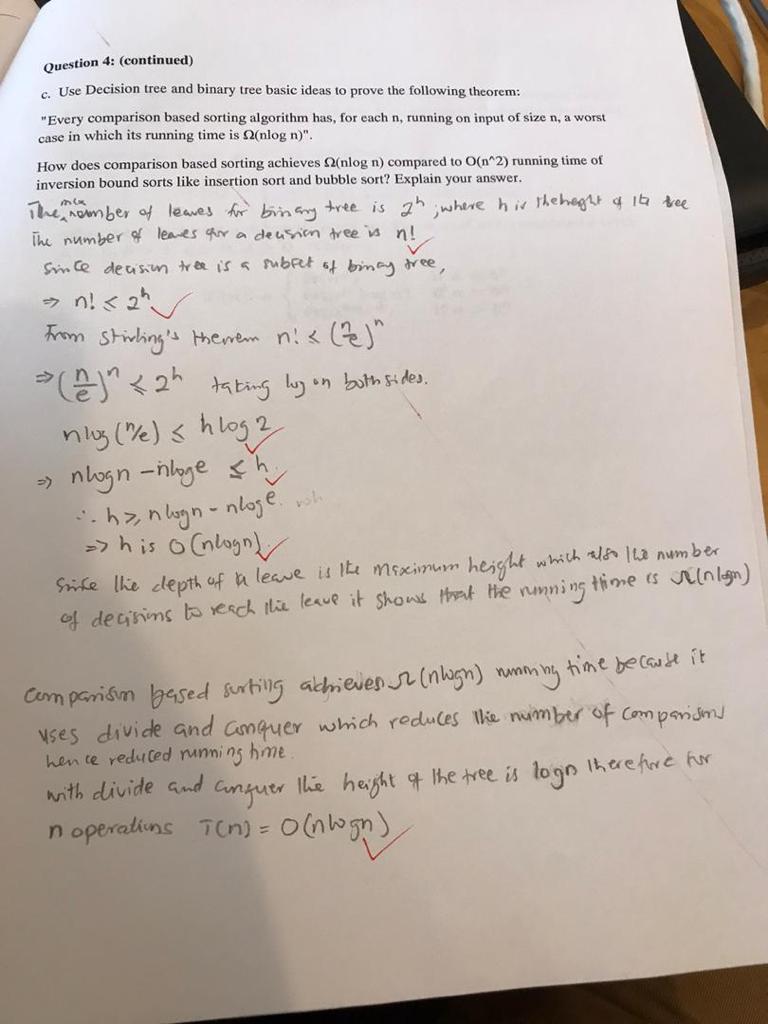 Question 4: (continued)
c. Use Decision tree and binary tree basic ideas to prove the following theorem:
"Every comparison based sorting algorithm has, for each n, running on input of size n, a worst
case in which its running time is Ω(nlog n)".
How does comparison based sorting achieves Ω(nlog n) compared to O(n^2) running time of
inversion bound sorts like insertion sort and bubble sort? Explain your answer.
The max number of leaves for binary tree is 2^h, where h is the height of the tree
The number of leaves for a decision tree is n!
Since decision tree is a subset of binary tree,
⇒ n! ≤ 2^h
From Stirling's theorem n! < (n/e)^n
⇒ (n/e)^n ≤ 2^h taking log on both sides.
nlog(n/e) ≤ hlog2
⇒ nlogn - nloge ≤ h
∴ h ≥ nlogn - nloge.
⇒ h is O(nlogn)
Since the depth of a leave is the maximum height which also the number
of decisions to reach the leave it shows that the running time is Ω(nlogn)
Comparison based sorting achieves Ω(nlogn) running time because it
uses divide and conquer which reduces the number of comparisons
hence reduced running time.
with divide and conquer the height of the tree is logn therefore for
n operations T(n) = O(nlogn)